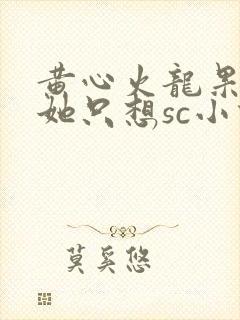 黄心火龍果
她只想sc小
莫奚悠